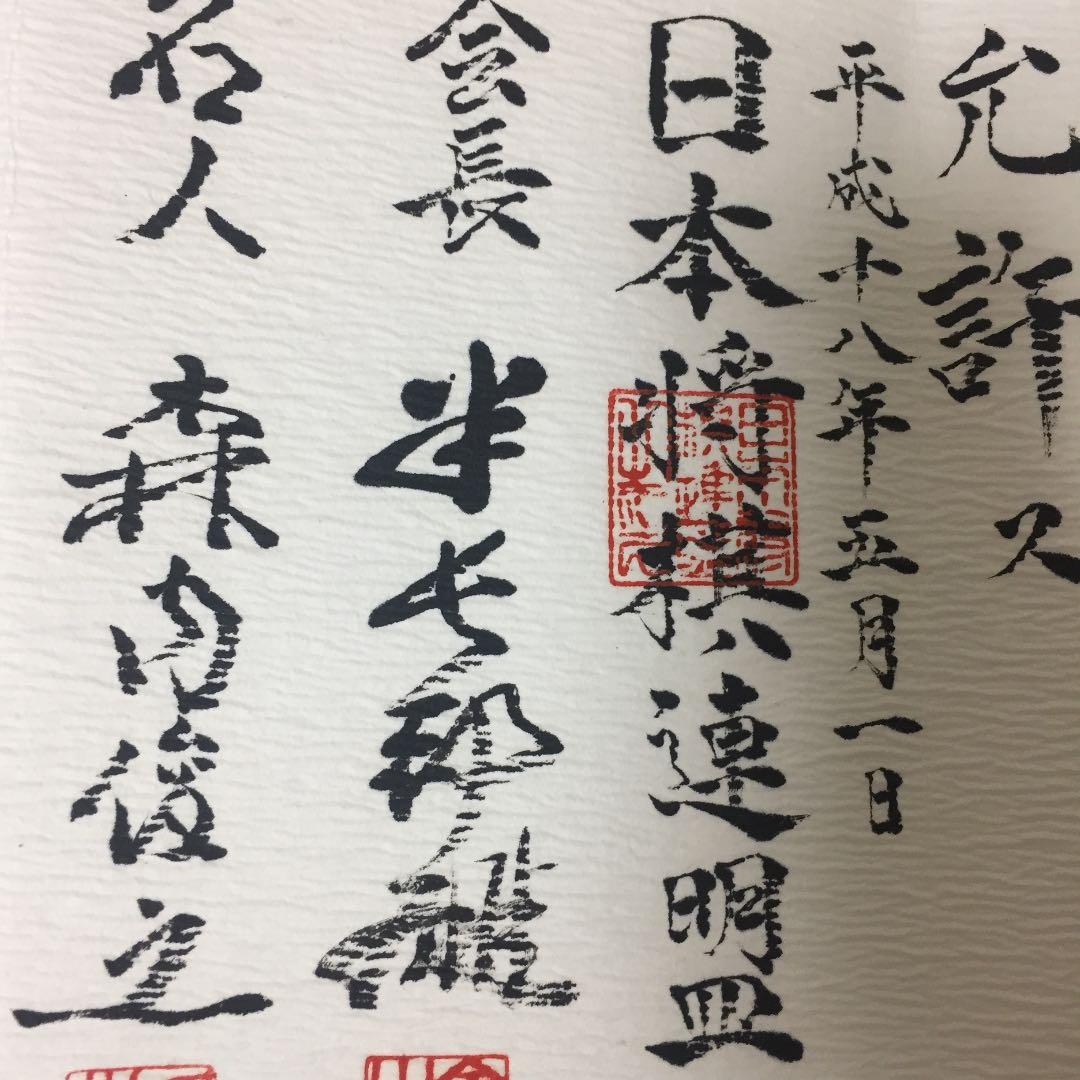 允許ス
平成十八年五月一日
日本将棋連盟
会長 米長邦雄
名人 森内俊之